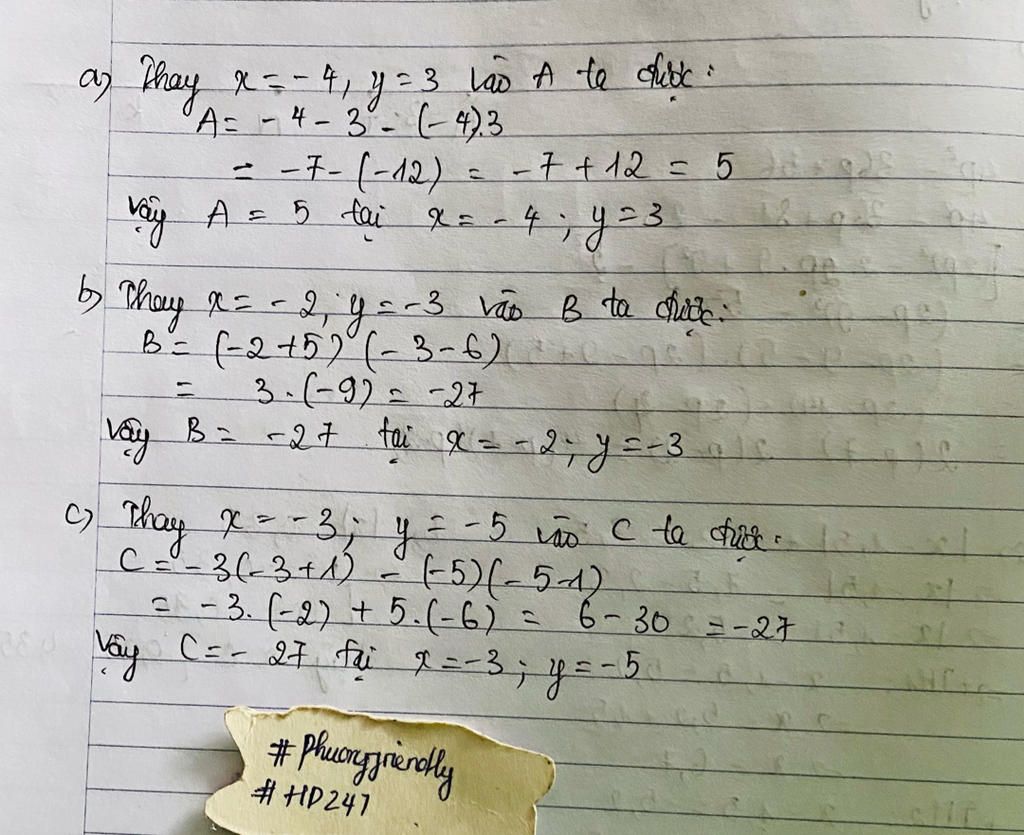 a) Thay x = -4, y = 3 vào A ta được:
A = -4 - 3 - (-4).3
= -7 - (-12) = -7 + 12 = 5
Vậy A = 5 tại x = -4; y = 3
b) Thay x = -2; y = -3 vào B ta được:
B = (-2+5)(-3-6)
= 3.(-9) = -27
Vậy B = -27 tại x = -2; y = -3
c) Thay x = -3; y = -5 vào C ta được:
C = -3(-3+1) - (-5)(-5-1)
= -3.(-2) + 5.(-6) = 6 - 30 = -27
Vậy C = -27 tại x = -3; y = -5
#Phuongfriendly
#HD247